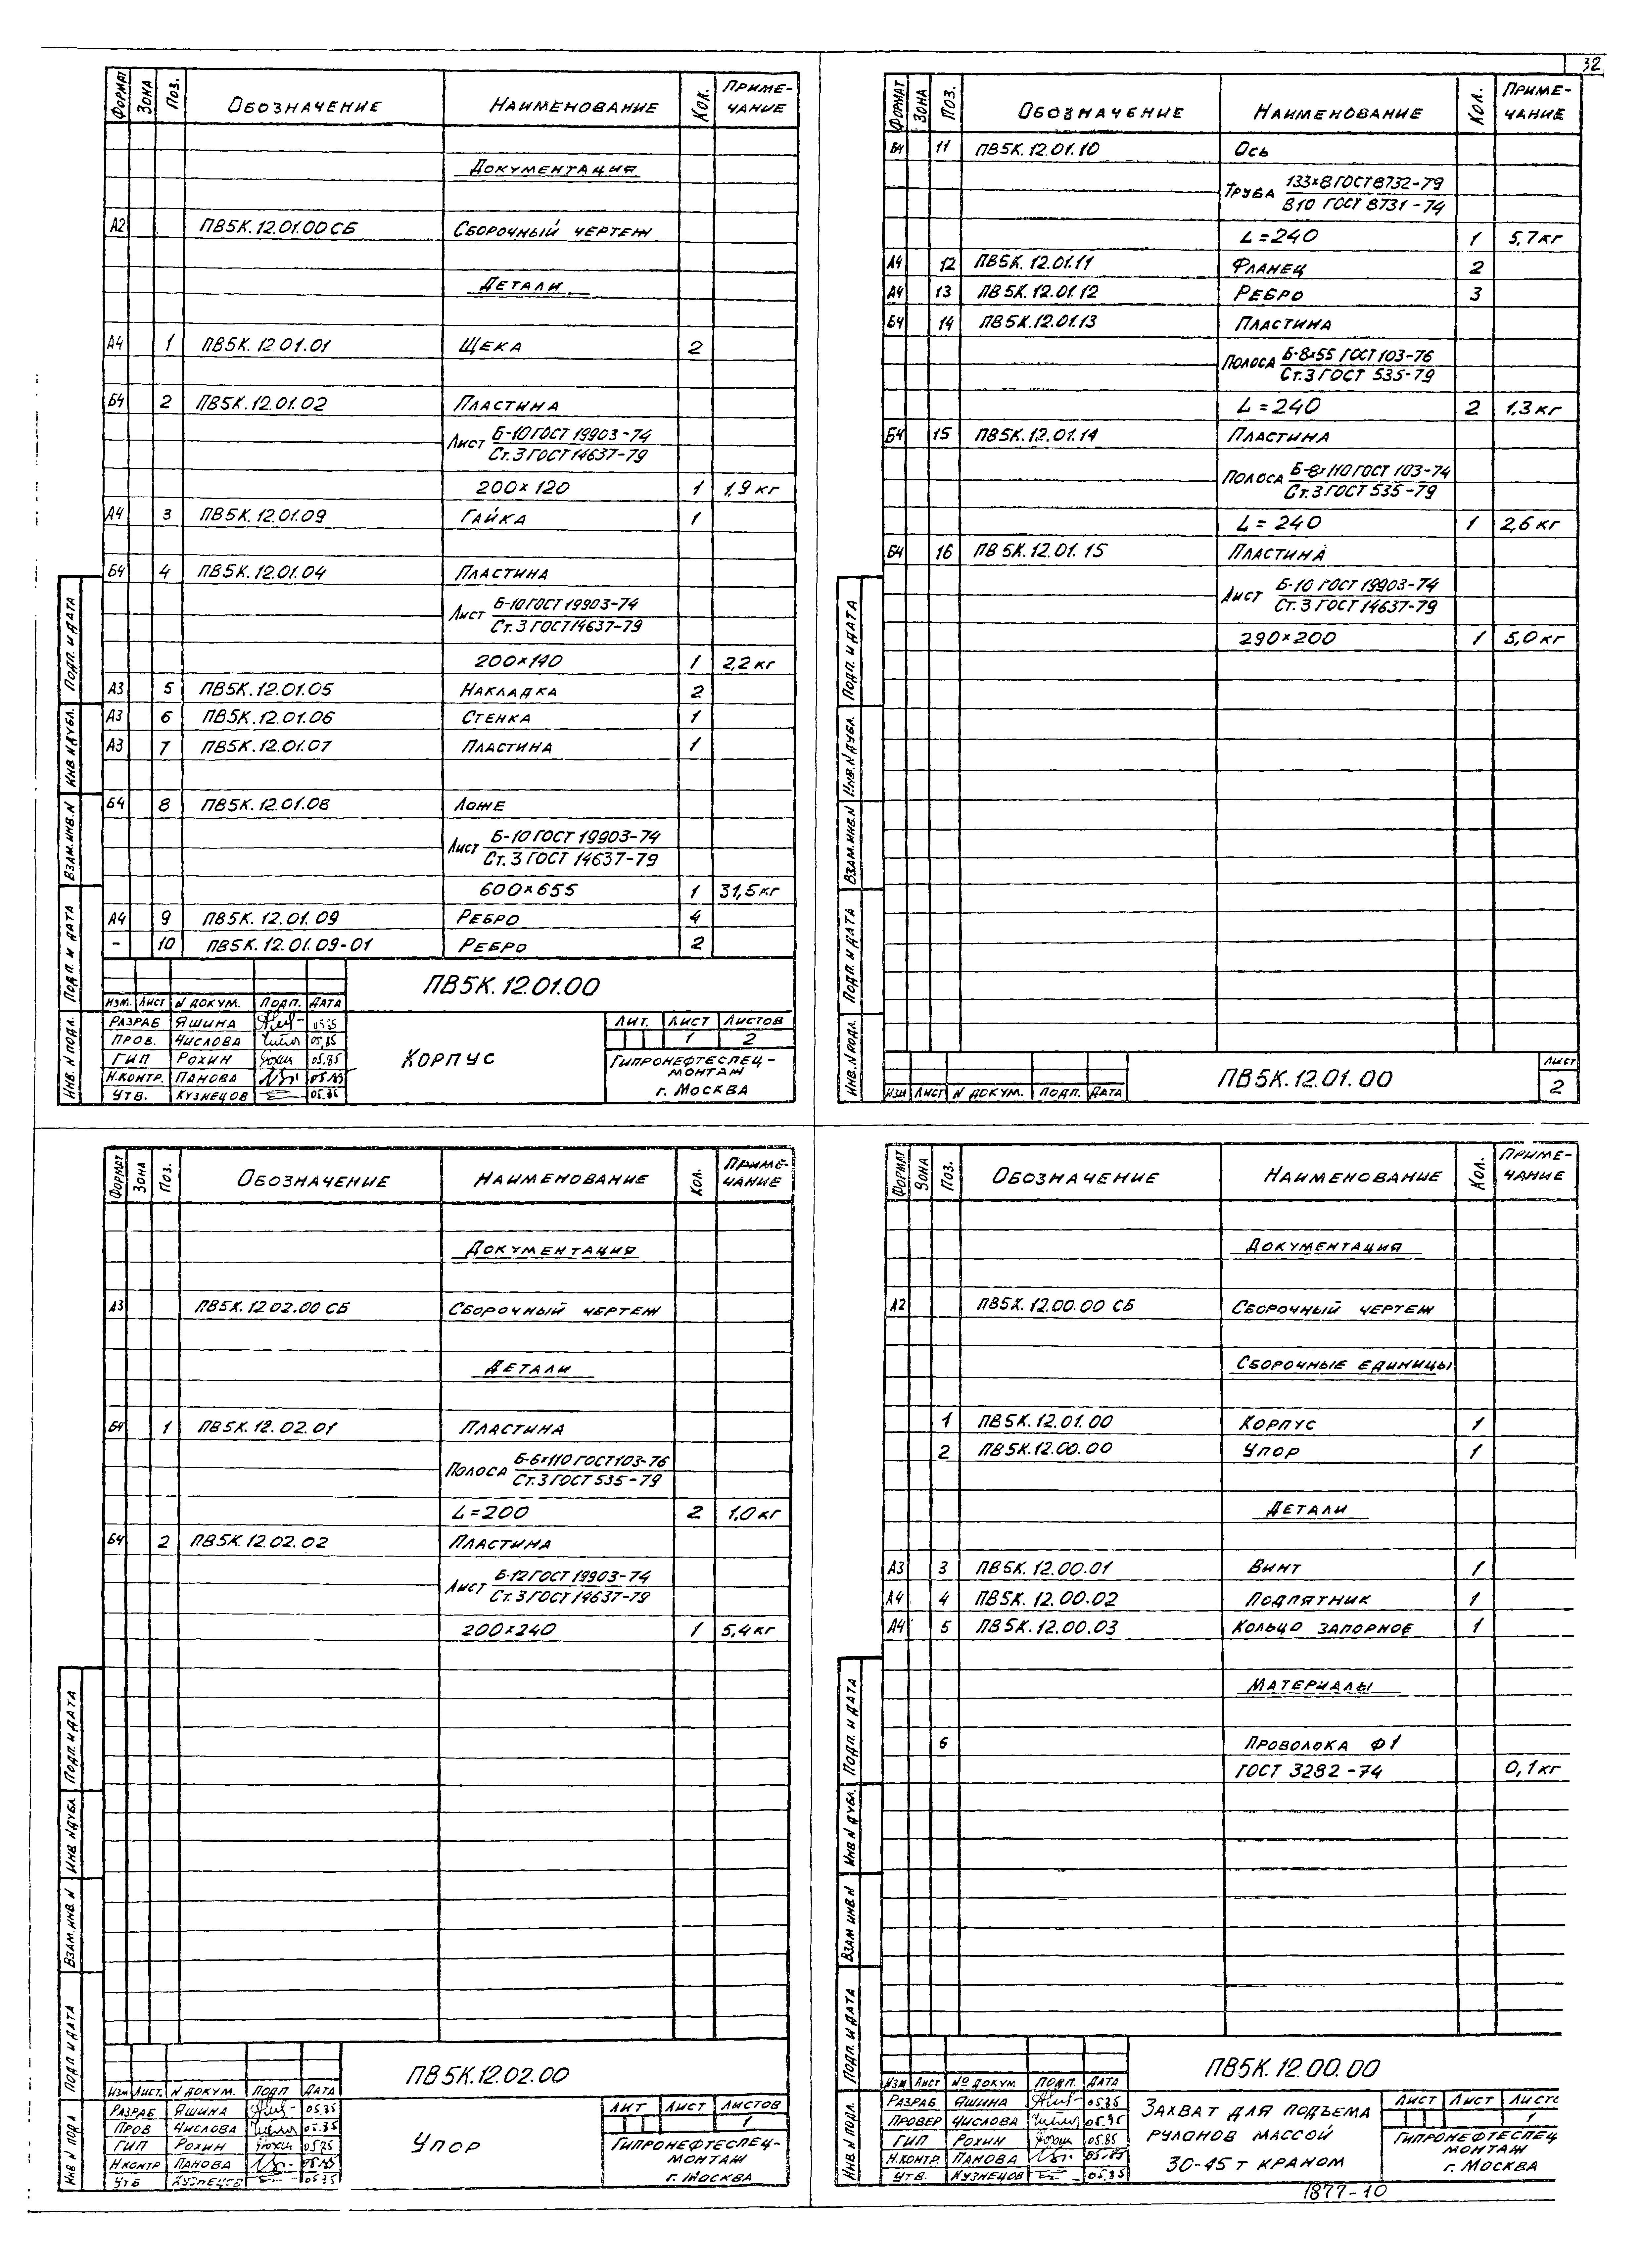 32
Формат Зона Поз. Обозначение Наименование Кол. Примечание
Документация
А2 ПВ5К.12.01.00 СБ Сборочный чертеж
Детали
А4 1 ПВ5К.12.01.01 Щека 2
Б4 2 ПВ5К.12.01.02 Пластина
Лист Б-10 ГОСТ 19903-74
Ст.3 ГОСТ 14637-79
200×120 1 1,9 кг
А4 3 ПВ5К.12.01.09 Гайка 1
Б4 4 ПВ5К.12.01.04 Пластина
Лист Б-10 ГОСТ 19903-74
Ст.3 ГОСТ 14637-79
200×140 1 2,2 кг
А3 5 ПВ5К.12.01.05 Накладка 2
А3 6 ПВ5К.12.01.06 Стенка 1
А3 7 ПВ5К.12.01.07 Пластина 1
Б4 8 ПВ5К.12.01.08 Ложе
Лист Б-10 ГОСТ 19903-74
Ст.3 ГОСТ 14637-79
600×655 1 31,5 кг
А4 9 ПВ5К.12.01.09 Ребро 4
- 10 ПВ5К.12.01.09-01 Ребро 2
Подп. и дата
Инв N дубл.
Взам.инв.N
Подп. и дата
Инв. N подл.
ПВ5К.12.01.00
Изм. Лист N докум. Подп. Дата
Разраб Яшина 05.85
Пров. Числова 05.85
ГИП Рохин 05.85
Н.контр. Панова 05.85
Утв. Кузнецов 05.85
Корпус
Лит. Лист Листов
1 2
Гипронефтеспец-
монтаж
г. Москва
Формат Зона Поз. Обозначение Наименование Кол. Примечание
Б4 11 ПВ5К.12.01.10 Ось
Труба 133×8 ГОСТ 8732-79
В10 ГОСТ 8731-74
L=240 1 5,7 кг
А4 12 ПВ5К.12.01.11 Фланец 2
А4 13 ПВ5К.12.01.12 Ребро 3
Б4 14 ПВ5К.12.01.13 Пластина
Полоса Б-8×55 ГОСТ 103-76
Ст.3 ГОСТ 535-79
L=240 2 1,3 кг
Б4 15 ПВ5К.12.01.14 Пластина
Полоса Б-8×110 ГОСТ 103-74
Ст.3 ГОСТ 535-79
L=240 1 2,6 кг
Б4 16 ПВ5К.12.01.15 Пластина
Лист Б-10 ГОСТ 19903-74
Ст.3 ГОСТ 14637-79
290×200 1 5,0 кг
Подп. и дата
Инв. N дубл.
Взам.инв.N
Подп. и дата
Инв. N подл.
Изм Лист N докум. Подп. Дата
ПВ5К.12.01.00
Лист
2
Формат Зона Поз. Обозначение Наименование Кол. Примечание
Документация
А3 ПВ5К.12.02.00 СБ Сборочный чертеж
Детали
Б4 1 ПВ5К.12.02.01 Пластина
Полоса Б-6×110 ГОСТ 103-76
Ст.3 ГОСТ 535-79
L=200 2 1,0 кг
Б4 2 ПВ5К.12.02.02 Пластина
Лист Б-12 ГОСТ 19903-74
Ст.3 ГОСТ 14637-79
200×240 1 5,4 кг
Подп. и дата
Инв N дубл
Взам.инв.N
Подп и дата
Инв N подл
ПВ5К.12.02.00
Изм Лист. N докум. Подп Дата
Разраб Яшина 05.85
Пров Числова 05.85
ГИП Рохин 05.85
Н.контр Панова 05.85
Утв Кузнецов 05.85
Упор
Лит Лист Листов
1
Гипронефтеспец-
монтаж
г. Москва
Формат Зона Поз. Обозначение Наименование Кол. Примечание
Документация
А2 ПВ5К.12.00.00 СБ Сборочный чертеж
Сборочные единицы
1 ПВ5К.12.01.00 Корпус 1
2 ПВ5К.12.00.00 Упор 1
Детали
А3 3 ПВ5К.12.00.01 Винт 1
А4 4 ПВ5К.12.00.02 Подпятник 1
А4 5 ПВ5К.12.00.03 Кольцо запорное 1
Материалы
6 Проволока Ф1
ГОСТ 3282-74 0,1 кг
Подп. и дата
Инв N дубл.
Взам инв N
Подп. и дата
Инв. N подл.
ПВ5К.12.00.00
Изм Лист Nº докум Подп. Дата
Разраб Яшина 05.85
Провер Числова 05.85
ГИП Рохин 05.85
Н.контр. Панова 05.85
Утв. Кузнецов 05.85
Захват для подъема
рулонов массой
30-45 т краном
Лист Лист Листо
1
Гипронефтеспец
монтаж
г. Москва
1877-10